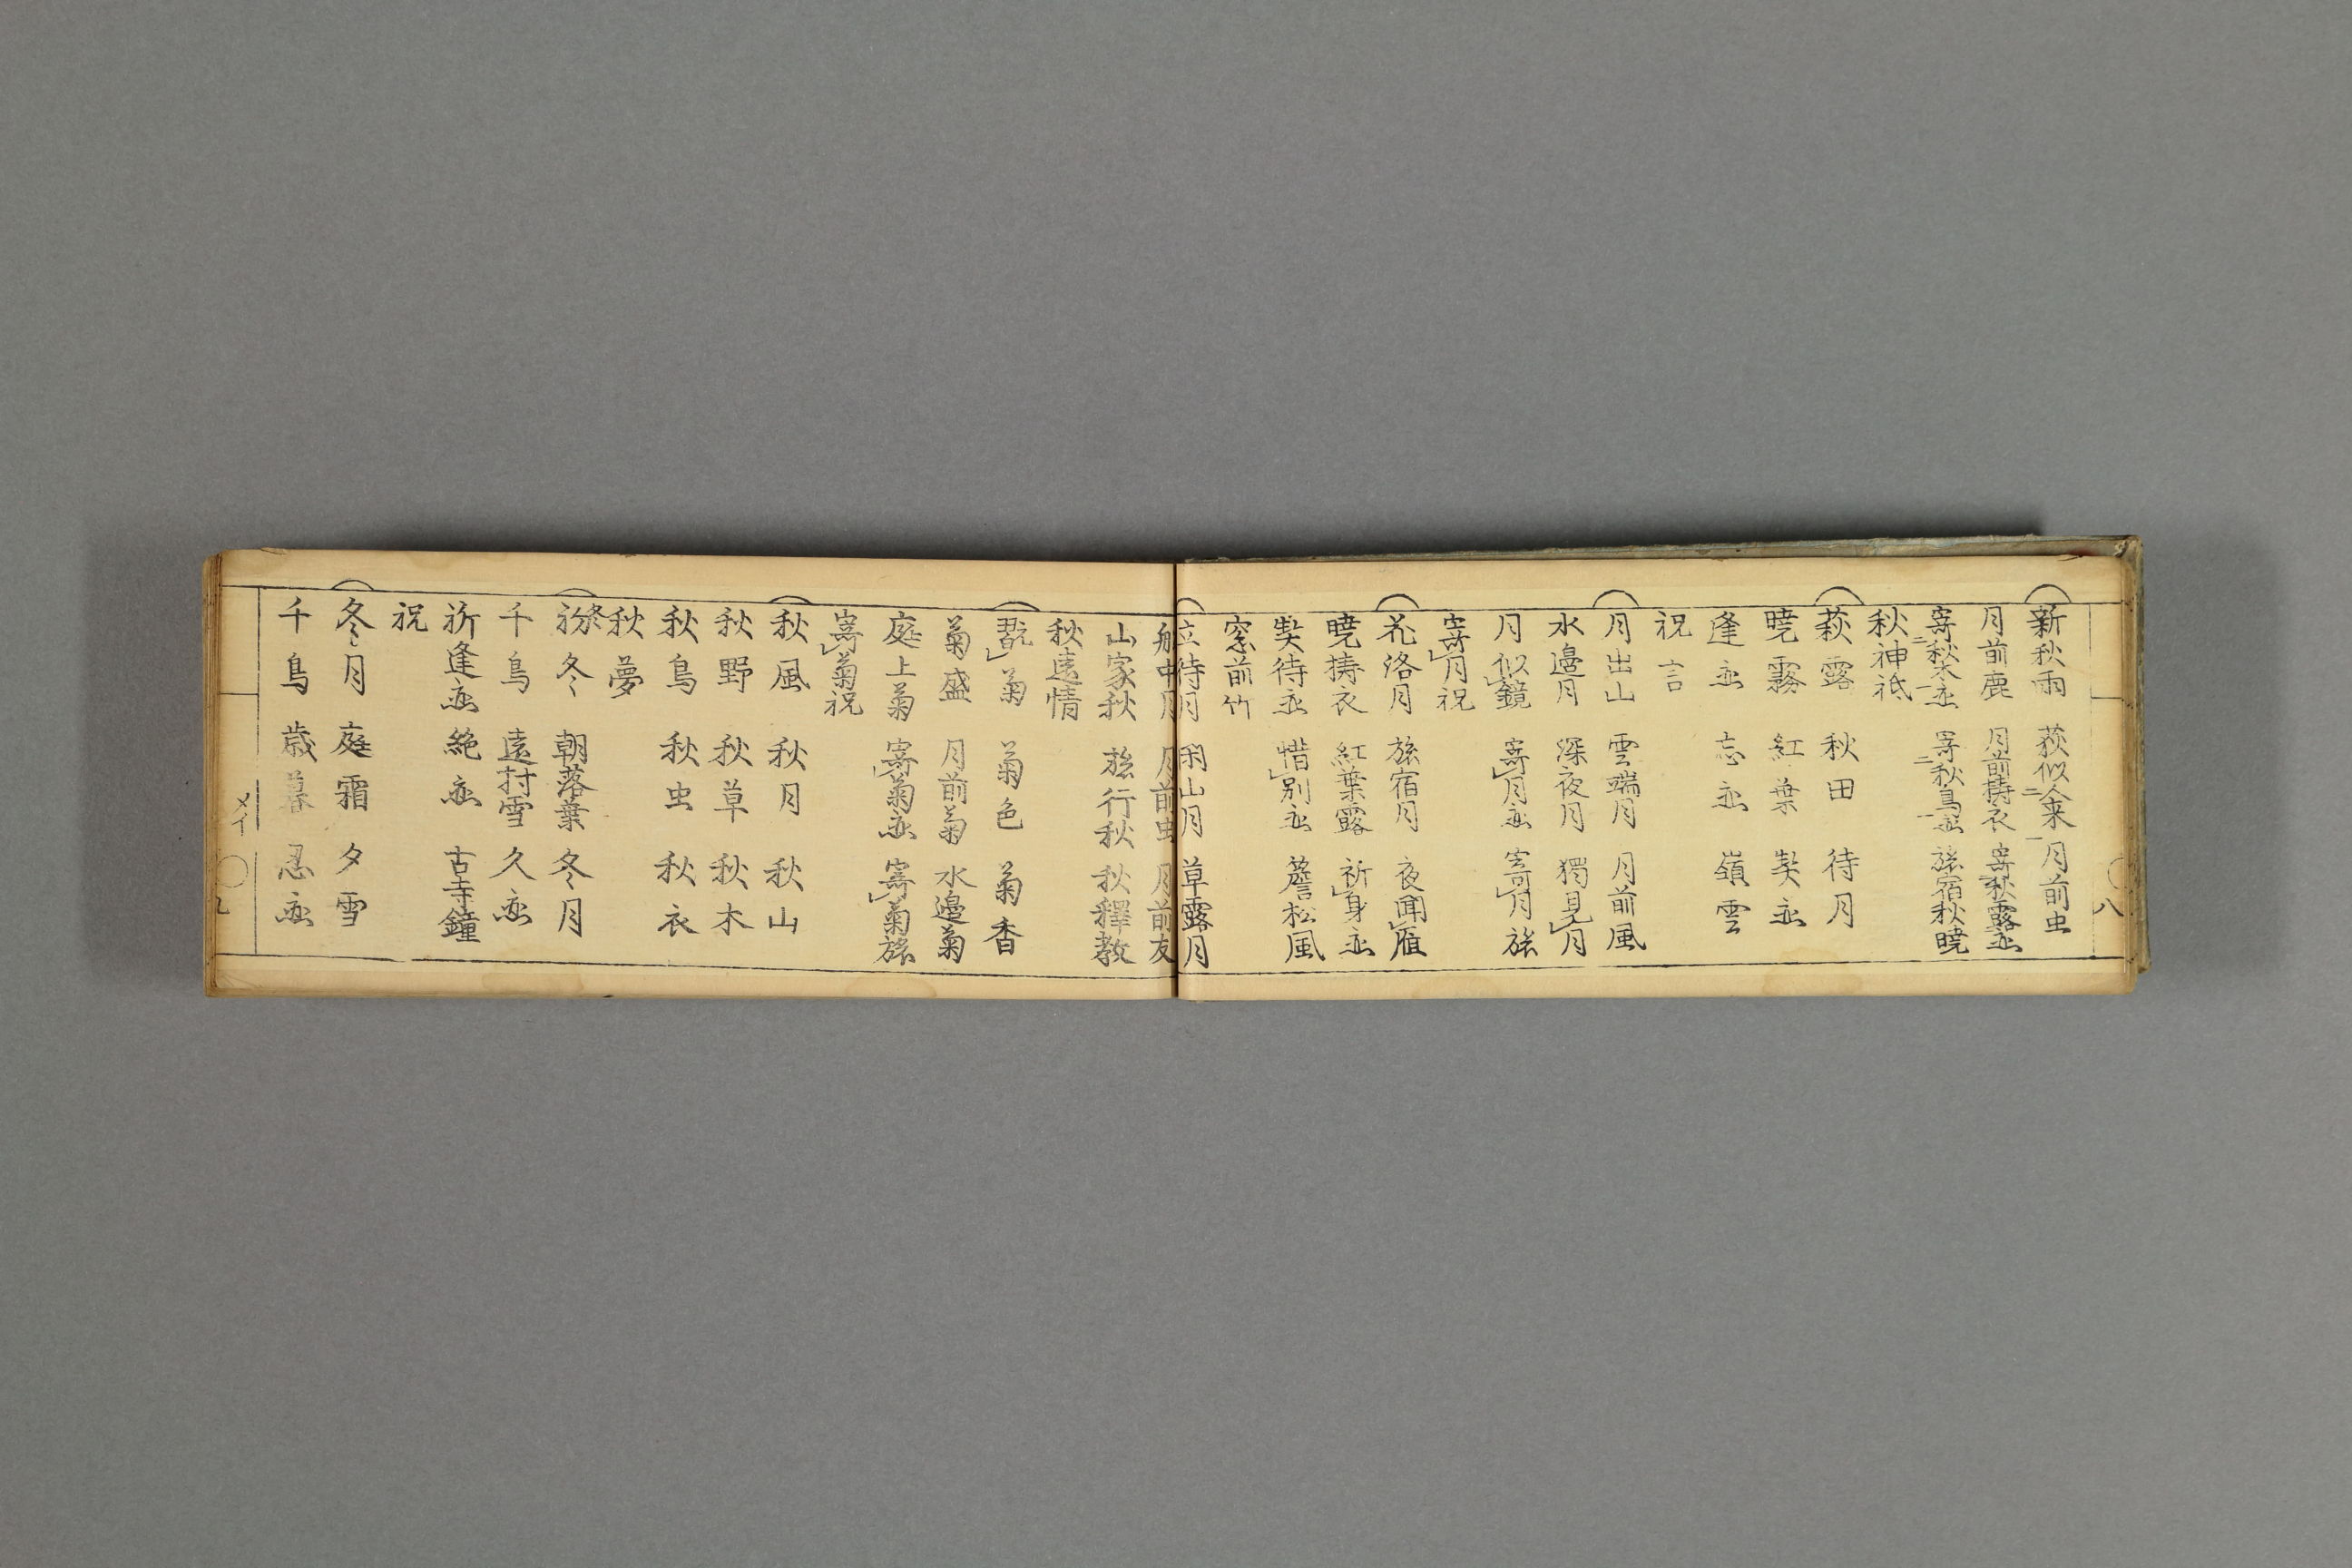 新秋雨 萩似人来 月前虫
月前鹿 月前擣衣 寄秋露恋
寄秋木恋 寄秋鳥恋 旅宿秋暁
秋神祗
萩露 秋田 待月
暁霧 紅葉 契恋
逢恋 忘恋 嶺雲
祝言
月出山 雲端月 月前風
水邉月 深夜月 獨見月
月似鏡 寄月恋 寄月旅
寄月祝
花洛月 旅宿月 夜聞雁
暁擣衣 紅葉露 祈身恋
契待恋 惜別恋 簷松風
窓前竹
立待月 山月 草露月
船中月 月前虫 月前友
山家秋 旅行秋 秋釋教
秋遠情
翫菊 菊色 菊香
菊盛 月前菊 水邉菊
庭上菊 寄菊恋 寄菊旅
寄菊祝
秋風 秋月 秋山
秋野 秋草 秋木
秋鳥 秋虫 秋衣
秋夢
初冬 朝落葉 冬月
千鳥 遠村雪 久恋
祈逢恋 絶恋 古寺鐘
祝
冬月 庭霜 夕雪
千鳥 歳暮 忍恋
八
メイ